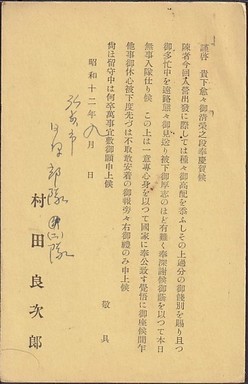 謹啓　貴下愈々御清榮之段奉慶賀候
陳者今回入營出發に際しては種々御高配を忝ふしその上過分の御餞別を賜り且つ
御多忙中を遠路態々御見送り被下御厚志のほど有難く奉深謝候御蔭を以つて本日
無事入隊仕り候　この上は一意專心身を以つて國家に奉公致す覺悟に御座候間乍
他事御休心被下度先づは不取敢安着の御報旁々右御禮のみ申上候
尚ほ留守中は何卒萬事宜敷御願申上候
敬具
昭和十二年九月　日
弘前市
部隊　隊
村田良次郎